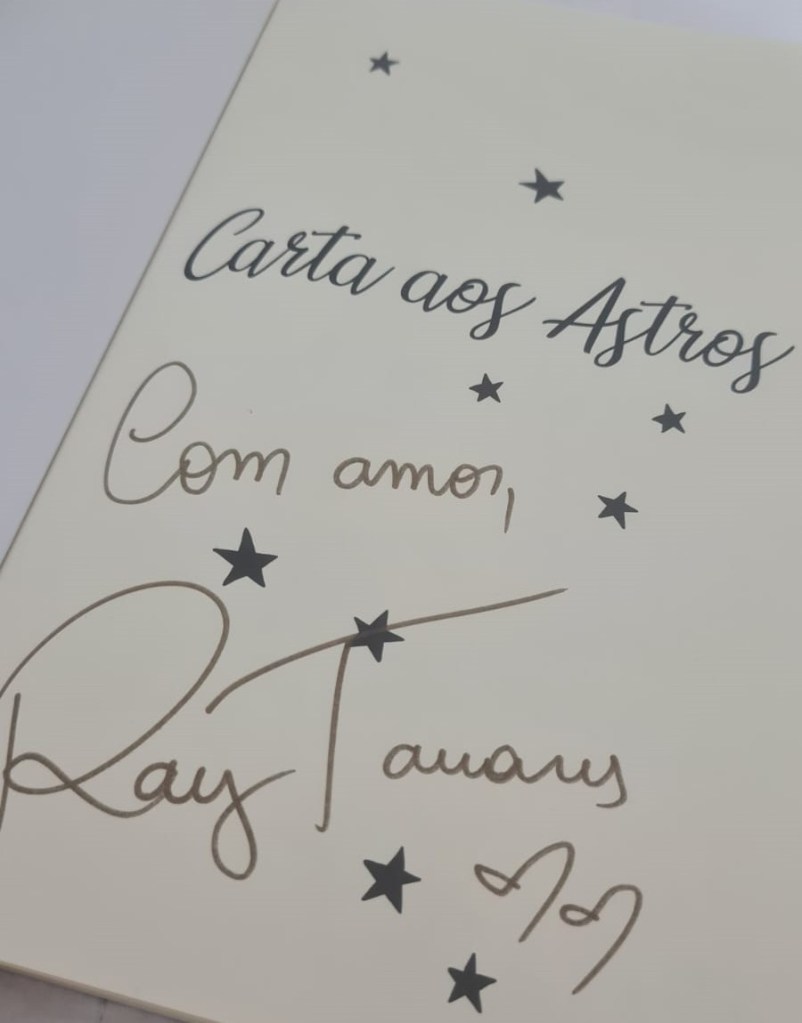 Carta aos Astros
Com amor,
Ray Tavares